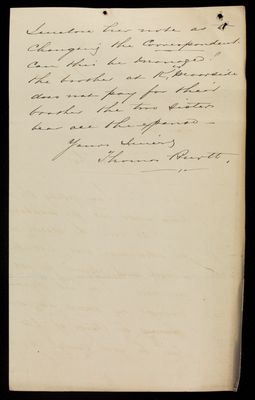 her note as to
changing the Correspondent.
Can this be arranged?
the brother at
does not pay for their
brother the two sisters
bear all the expense —
Yours Sincerely
Thomas